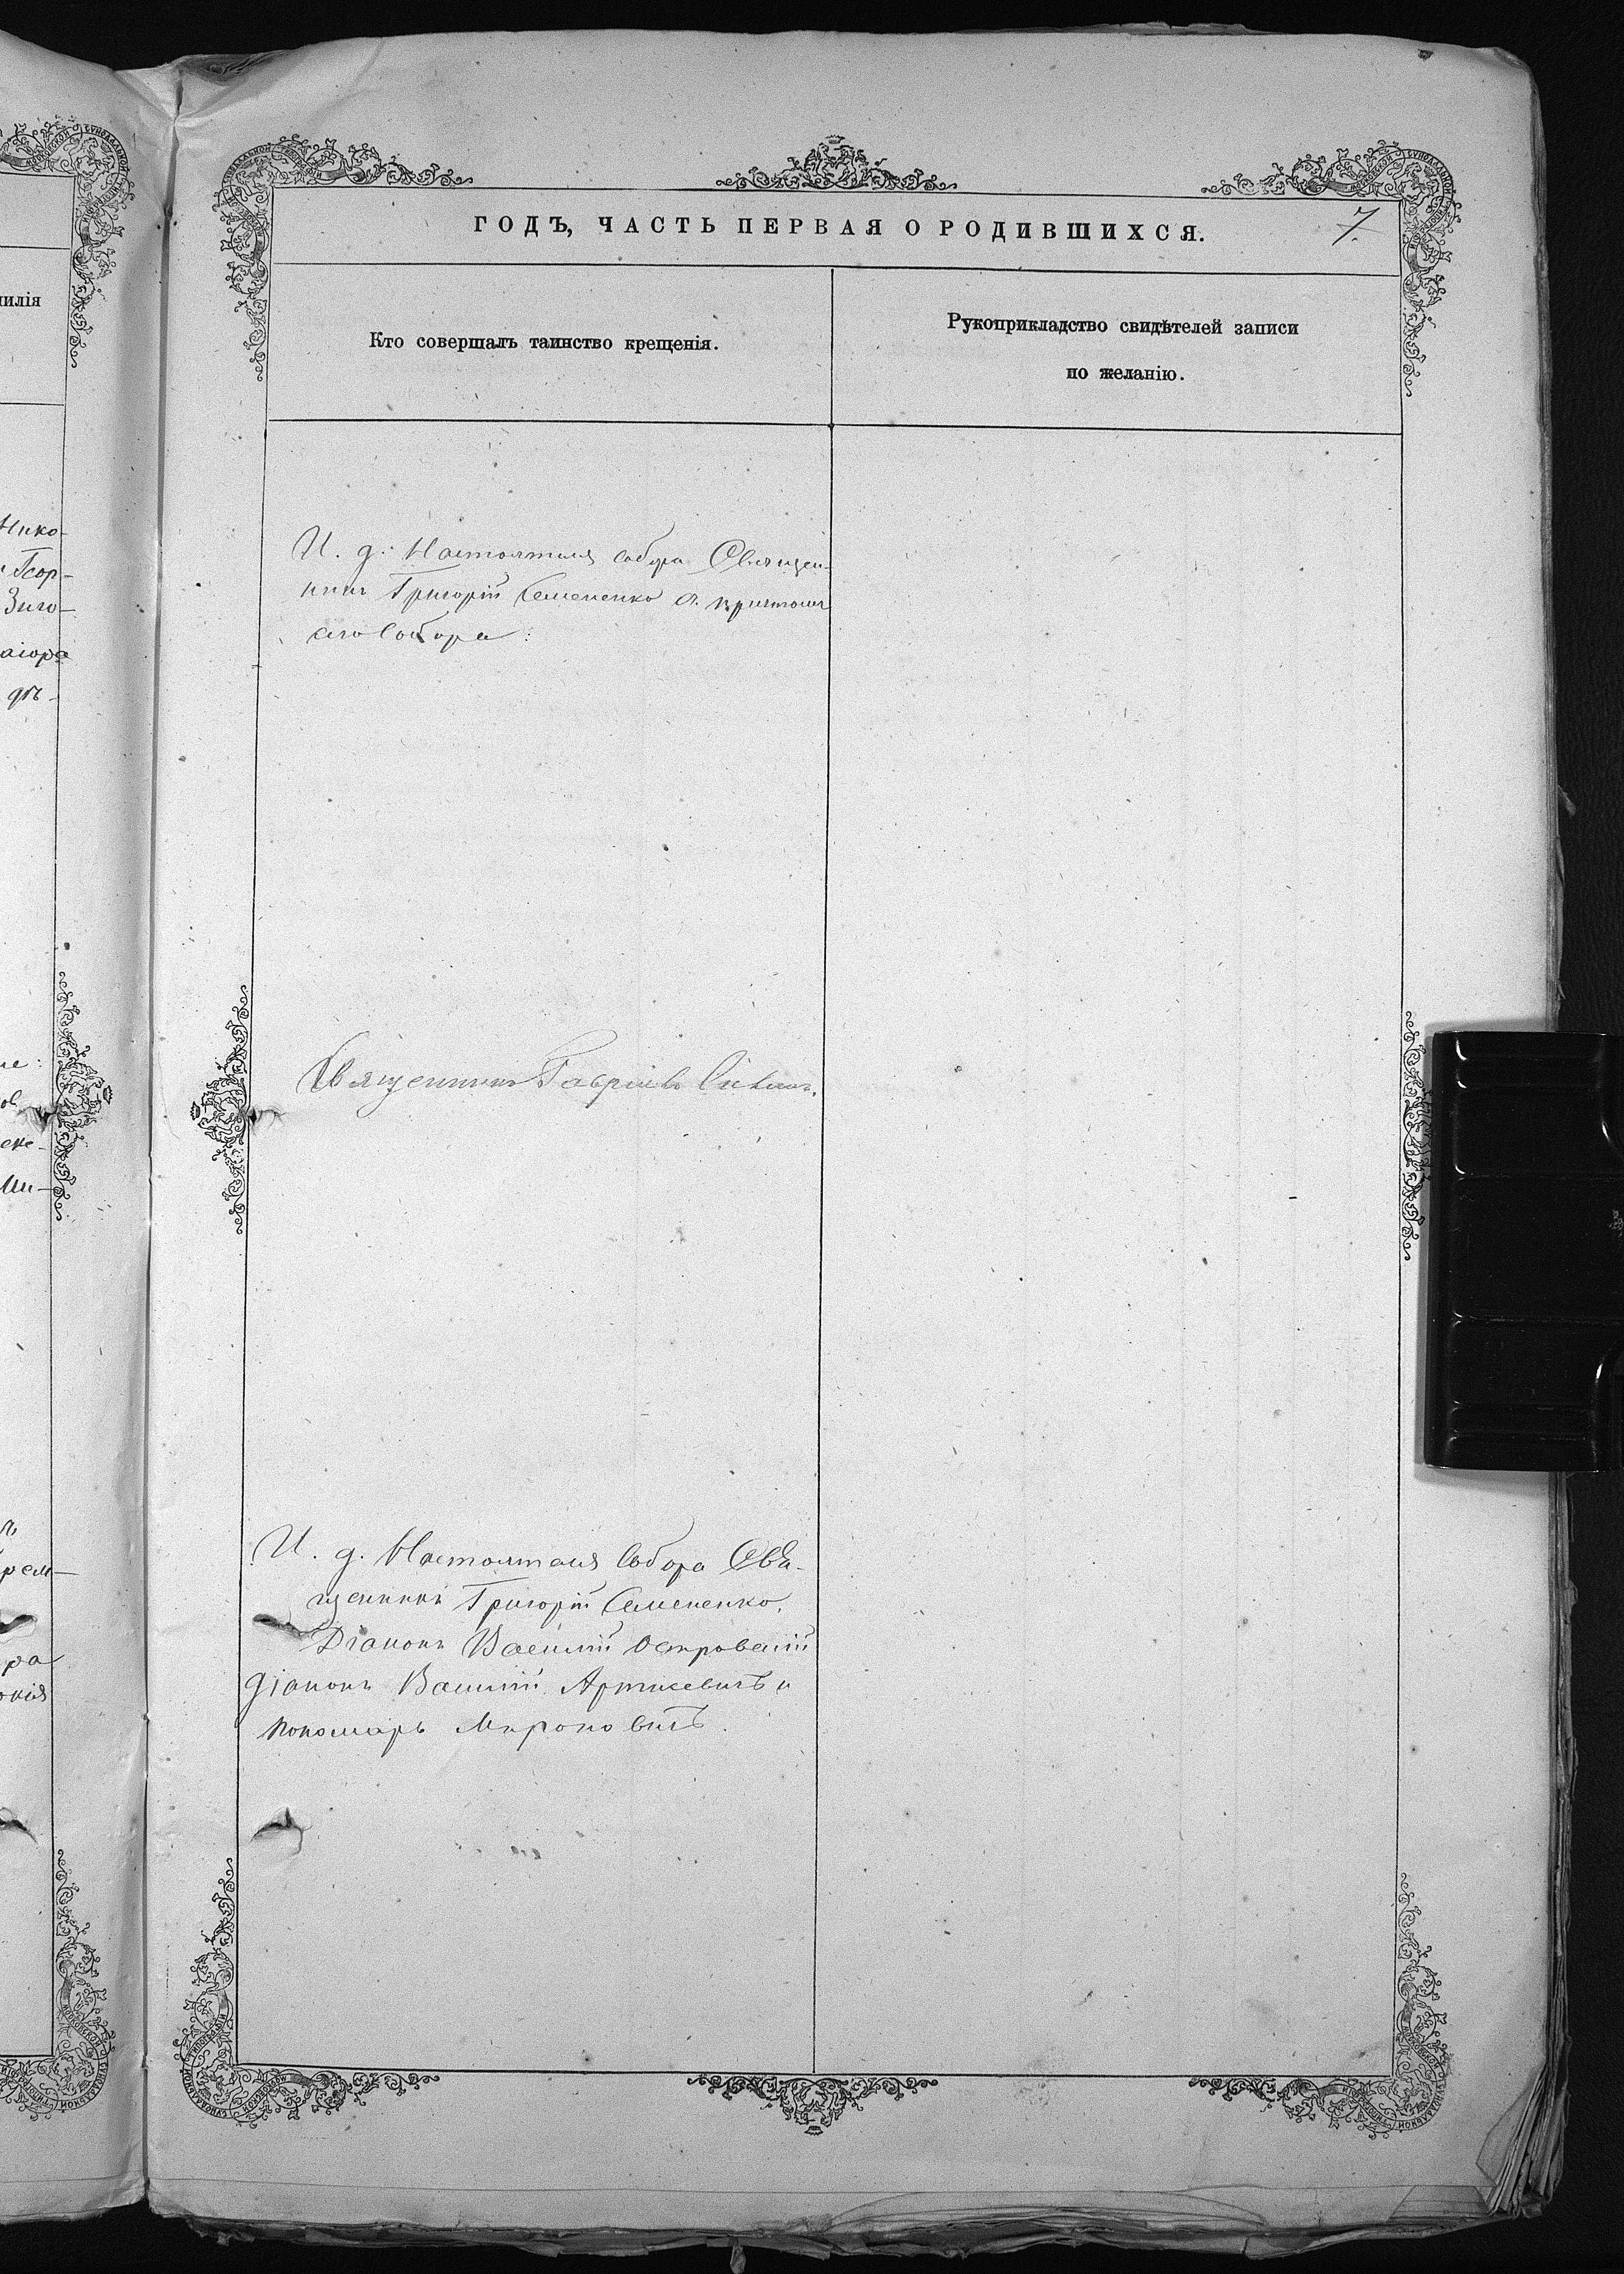 ГОДЪ, ЧАСТЬ ПЕРВАЯ О РОДИВШИХСЯ.
7.
Кто совершалъ таинство крещенія.
Рукоприкладство свидѣтелей записи
по желанію.
илія
Нико-
Геор-
Зиго-
аіора
дѣ-
И. д. Настоятеля Собора Священ-
никъ Григорій Семененко съ причтомъ
сего Собора:
Священникъ Гавріилъ
И. д. Настоятеля Собора Свя-
щенникъ Григорій Семененко,
Діаконъ Василій Островскій
діаконъ Василій Артисевичъ и
пономарь Мироновичъ.